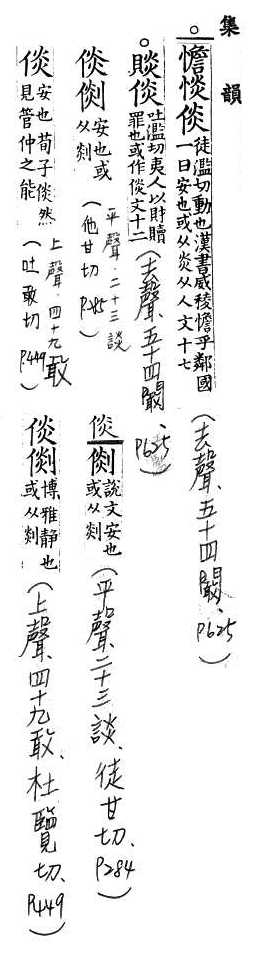 集韻
。憺惔倓徒濫切動也漢書威稜憺乎鄰國一曰安也或从炎从人文十七
(去聲、五十四闞、P625)
。賧倓吐濫切夷人以財贖罪也或作倓文十二
(去聲、五十四闞、P625)
倓㓧安也或从剡
(平聲.二十三談他甘切P285)
倓安也荀子倓然見管仲之能
(上聲.四十九敢吐敢切P449)
倓㓧說文安也或从剡
(平聲、二十三談、徒甘切、P284)
倓㓧博雅靜也或从剡
(上聲、四十九敢、杜覽切、P449)